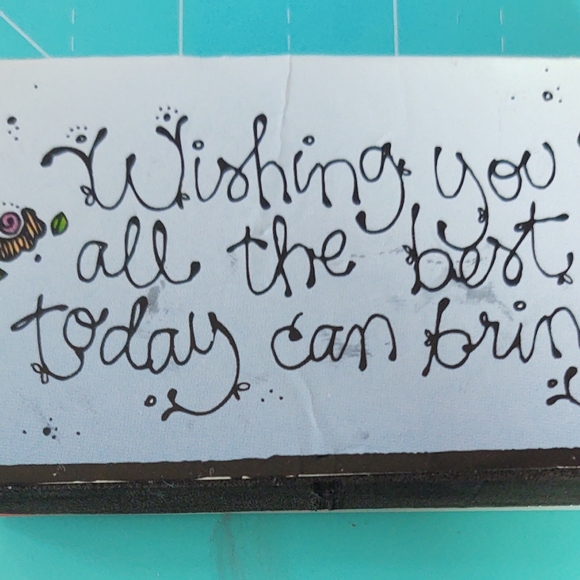 Wishing you
all the best
today can brin